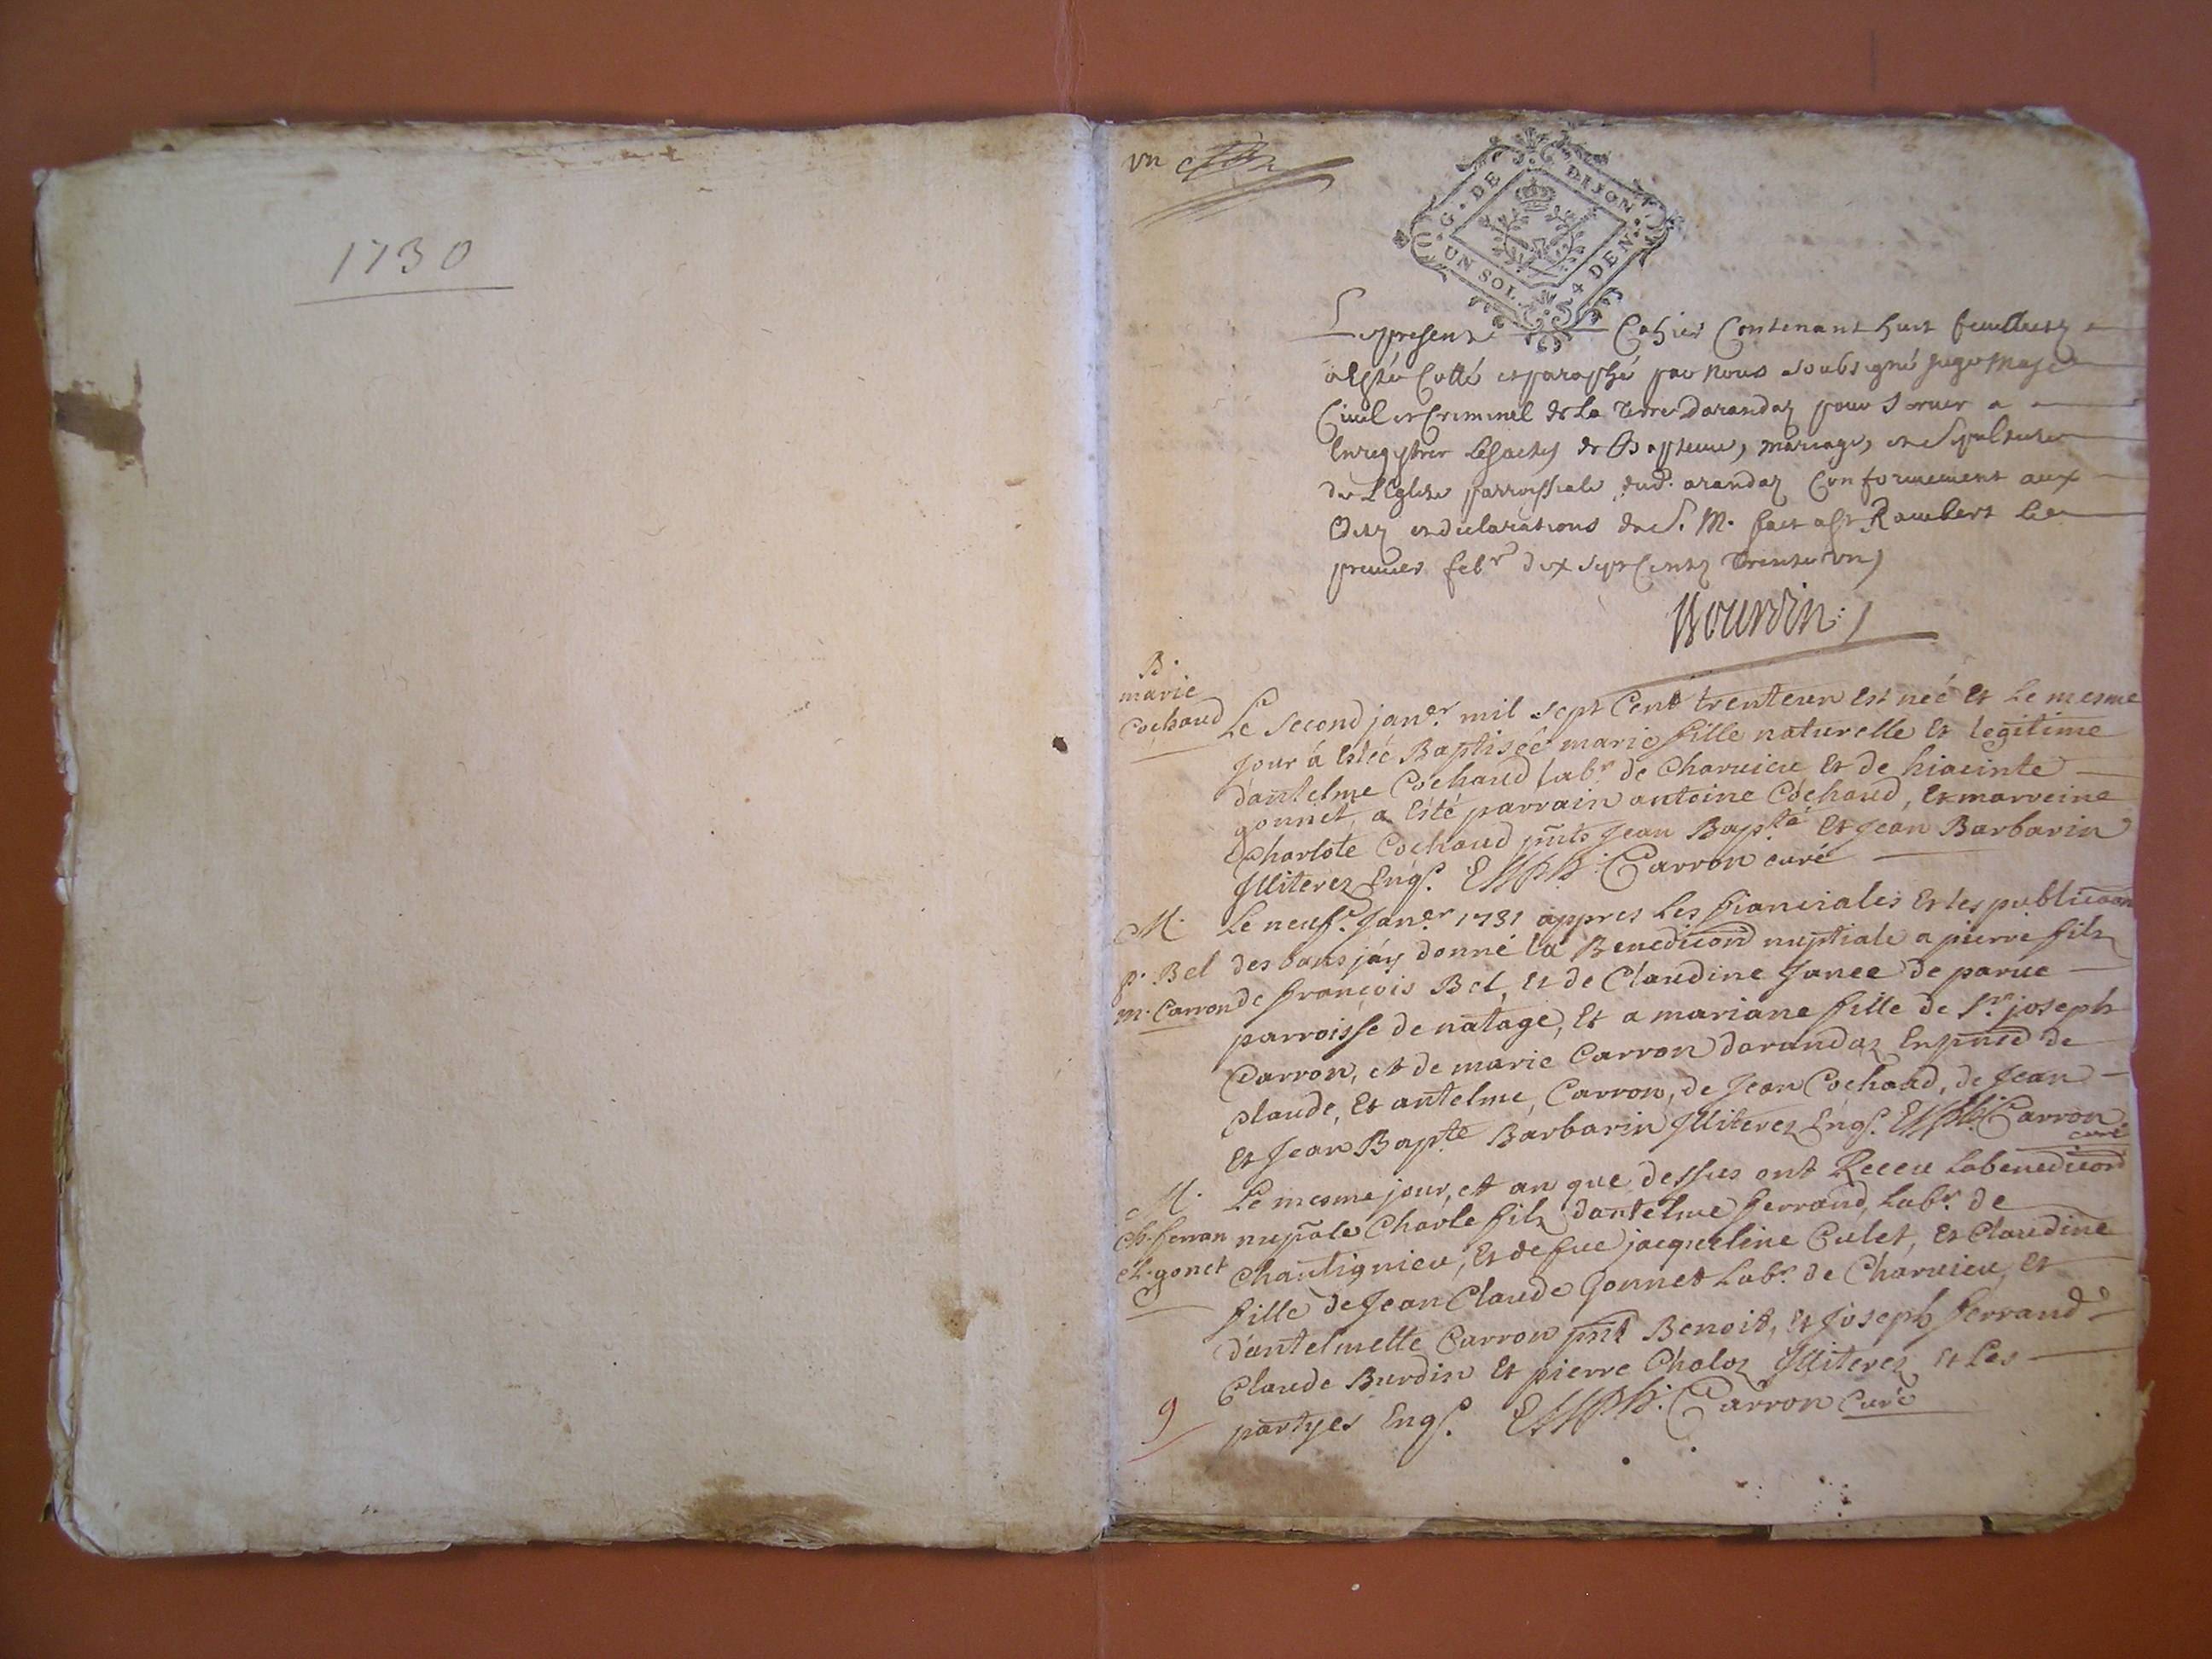 1730
un
G. DE DIJON
UN SOL. 4 DEN.
Le present Cahier Contenant huit feuilletz
a esté Cotté et paraphé par Nous soubsigné juge maje
Civil et Criminel de La Terre Darandaz pour servir a
Enregistrer les actes de Bapteme, mariage, et Sepulture
de L'Eglise parroissiale dud. arandaz Conformement aux
Edits et declarations de S. M. fait a St Rambert le
premier febr dix sept Centz Trente un
Bourdin
B.
marie
Cochaud
Le second janer. mil sept Cent trenteun est neé Et Le mesme
jour á Esteé Baptiseé marie fille naturelle Et legitime
dantelme Cochaud labr. de Charvieu Et de hiacinte
gonnet, a Esté parrain antoine Cochaud, Et marreine
Charlote Cochaud pnts Jean Bapte Et Jean Barbarin
Illiterez Enqs. Carron curé
M.
p. Bel
m. Carron
Le neufe. Janer 1731 appres Les fianciales Et les publicaon
des bans j'ay donné la Benedicond nuptiale a pierre filz
de françois Bel, Et de Claudine Janee de parve
parroisse de natage, Et a mariane fille de Sr. joseph
Carron, et de marie Carron darandaz En pnce de
Claude, Et antelme, Carron, de Jean Cochaud, de Jean
Et Jean Bapte Barbarin Illiterez Enqs. Carron
curé
M.
Ch. ferran
Cl. gonet
Le mesme jour, et an que dessus ont Receu La benedicond
nupale Charle filz dantelme ferrand, Labr. de
Chantignieu, Et de fue jacqueline Culet, Et Claudine
fille de Jean Claude Gonnet Labr. de Charvieu, Et
d'antelmette Carron pnt Benoit, Et Joseph ferrand
Claude Burdin Et pierre Chaloz Illiterez Et Les
partyes Enqs. Carron Curé
9